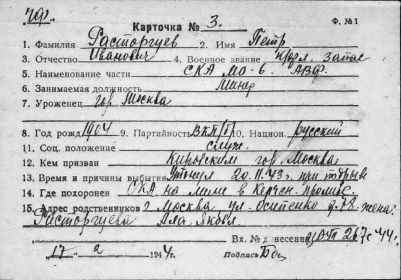 Ф. № 1
Карточка № 3.
1. Фамилия Расторгуев 2. Имя Петр
3. Отчество Иванович 4. Военное звание запас
5. Наименование части СКА МО-6. АВФ.
6. Занимаемая должность Минер
7. Уроженец гор. Москва
8. Год рожд. 1904 9. Партийность ВКП/б/ 10. Национ. русский
11. Соц. положение служ.
12. Кем призван Кировским гор. Москва
13. Время и причины выбытия Утонул 20.11.43г. при взрыве
14. Где похоронен СКА на мине в Керчен. проливе.
15. Адрес родственников г. Москва ул. Осипенко д. 78 жена:
Расторгуева
Вх. № донесения 267с 44г.
17 2 1944г. Подпись